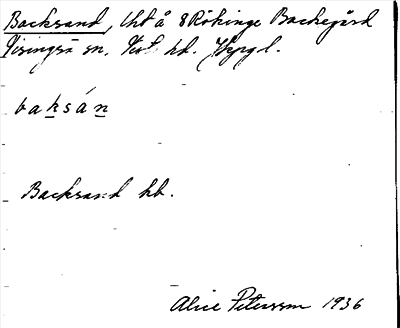 Backsand, lht å 8 Rökinge Backegård
Visingsö sn. Vist hd. Jkpg l.
baksán
Backsand hb.
Alice Petersson 1936